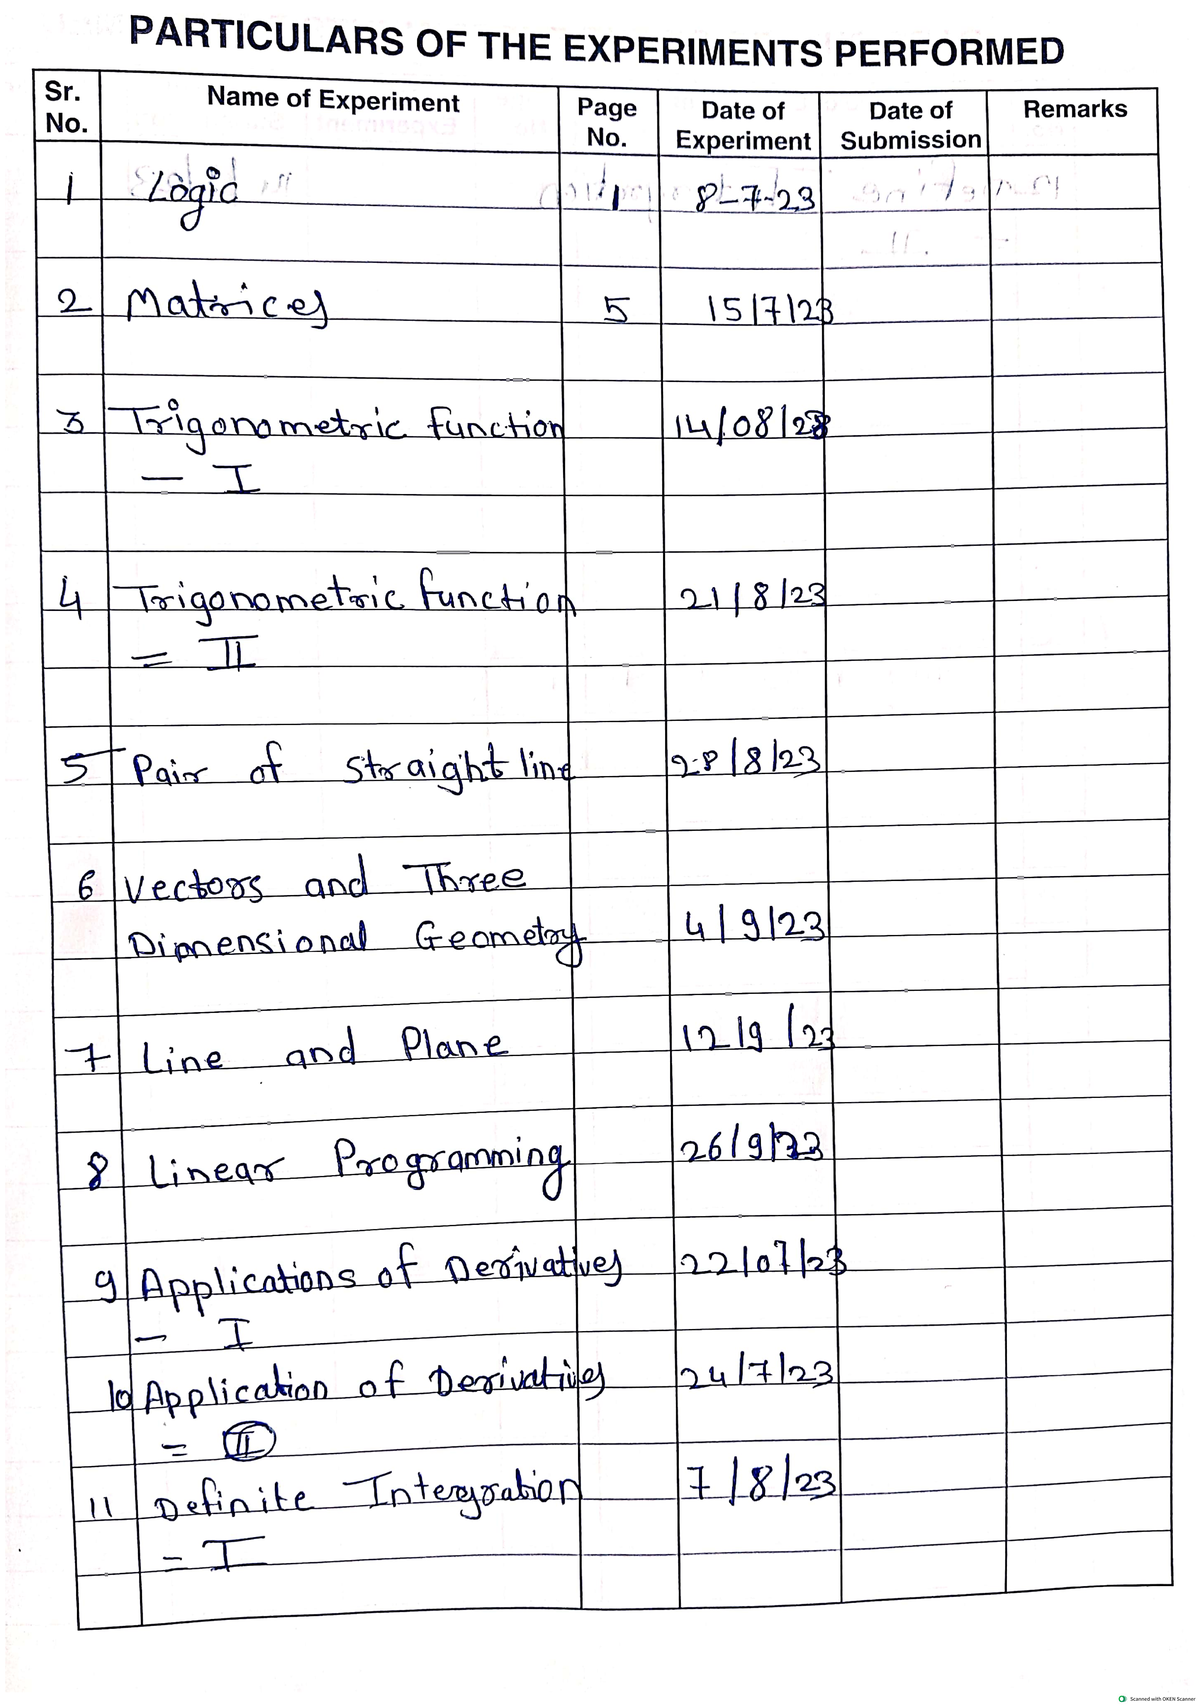 PARTICULARS OF THE EXPERIMENTS PERFORMED
Sr. No. Name of Experiment Page No. Date of Experiment Date of Submission Remarks
1 Logic 1 8-7-23
2 Matrices 5 15/7/23
3 Trigonometric function 14/08/23
- I
4 Trigonometric function 21/8/23
= II
5 Pair of straight line 28/8/23
6 Vectors and Three
Dimensional Geometry 4/9/23
7 Line and Plane 12/9/23
8 Linear Programming 26/9/23
9 Applications of Derivatives 22/07/23
- I
10 Application of Derivatives 24/7/23
= II
11 Definite Intergration 7/8/23
= I
Scanned with OKEN Scanner